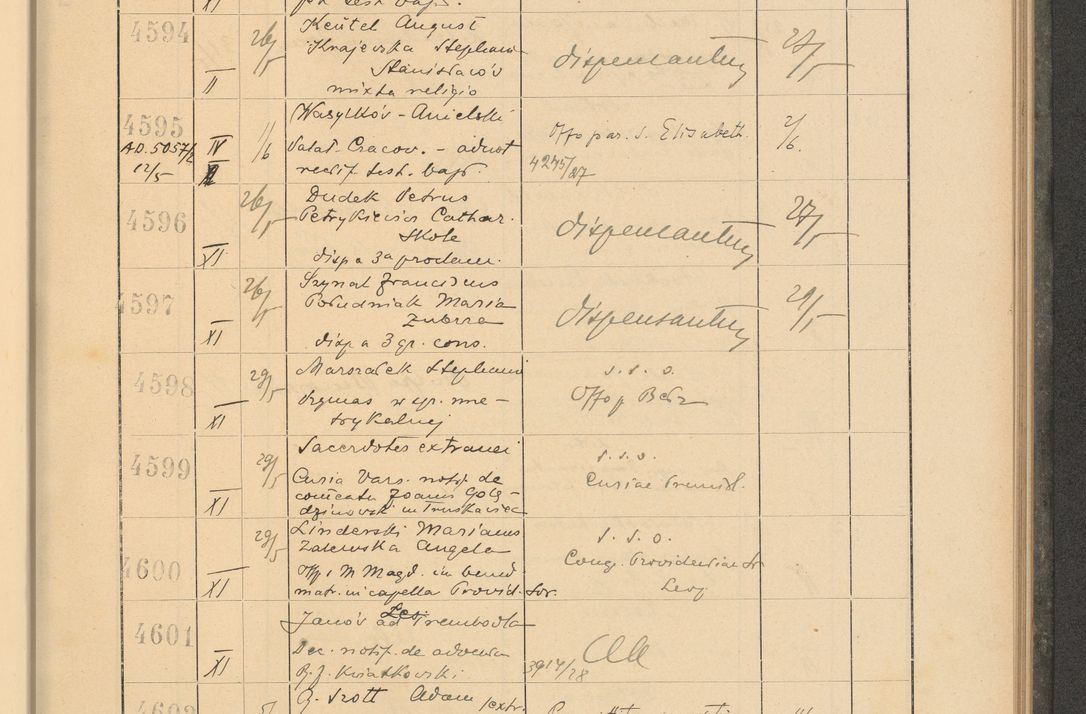 4594
26/5
Keütel August
Krajewska Stephan
Stanisławów
mixta religio
II
dispensantur
27/5
4595
A.D. 5057/2
12/5
IV
1/6
Wasylków - Anielski
Salat. Cracov. - adnot
rectif. test. bapt.
Offo par. s. Elisabeth.
4245/27
2/6.
4596
26/5
XI
Dudek Petrus
Petrykiewicz Cathar.
Skole
disp a 3a proclam.
dispensantur
27/5
4597
26/5
XI
Szynal Franciscus
Południak Maria
Zubrza
disp a 3 gr. cons.
dispensantur
29/5
4598
29/5
XI
Marszałek Stephani
Szymas w spr. me-
trykalnej
s. s. o.
Offo p Bełz
4599
29/5
XI
Sacerdotes extranei
Curia Vars. notif. de
Joanis Golę-
dzinowski in Truskawiec
s. s. o.
Curiae Premisl.
4600
29/5
XI
Linderski Marianus
Zalewska Angela
Off. s M Magd. in bened.
matr. in capella Provid. Sor.
s. s. o.
Cong. Providentiae Sr
Leop
4601
XI
Janów ad Trembowla
Dec. notif. de adventu
R. J. Kwiatkowski
3917/28
4602
5/
G. Szott Adam /extr.